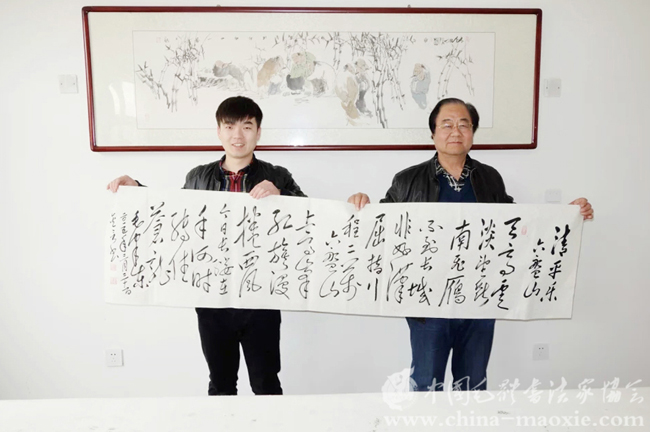 清平乐
六盘山
天高雲
淡望断
南飞雁
不到长城
非好漢
屈指行
程二万
六盘山
上高峰
红旗漫
捲西风
今日长缨在
手何时
缚住
蒼龙
中国毛体书法家协会
www.china-maoxie.com